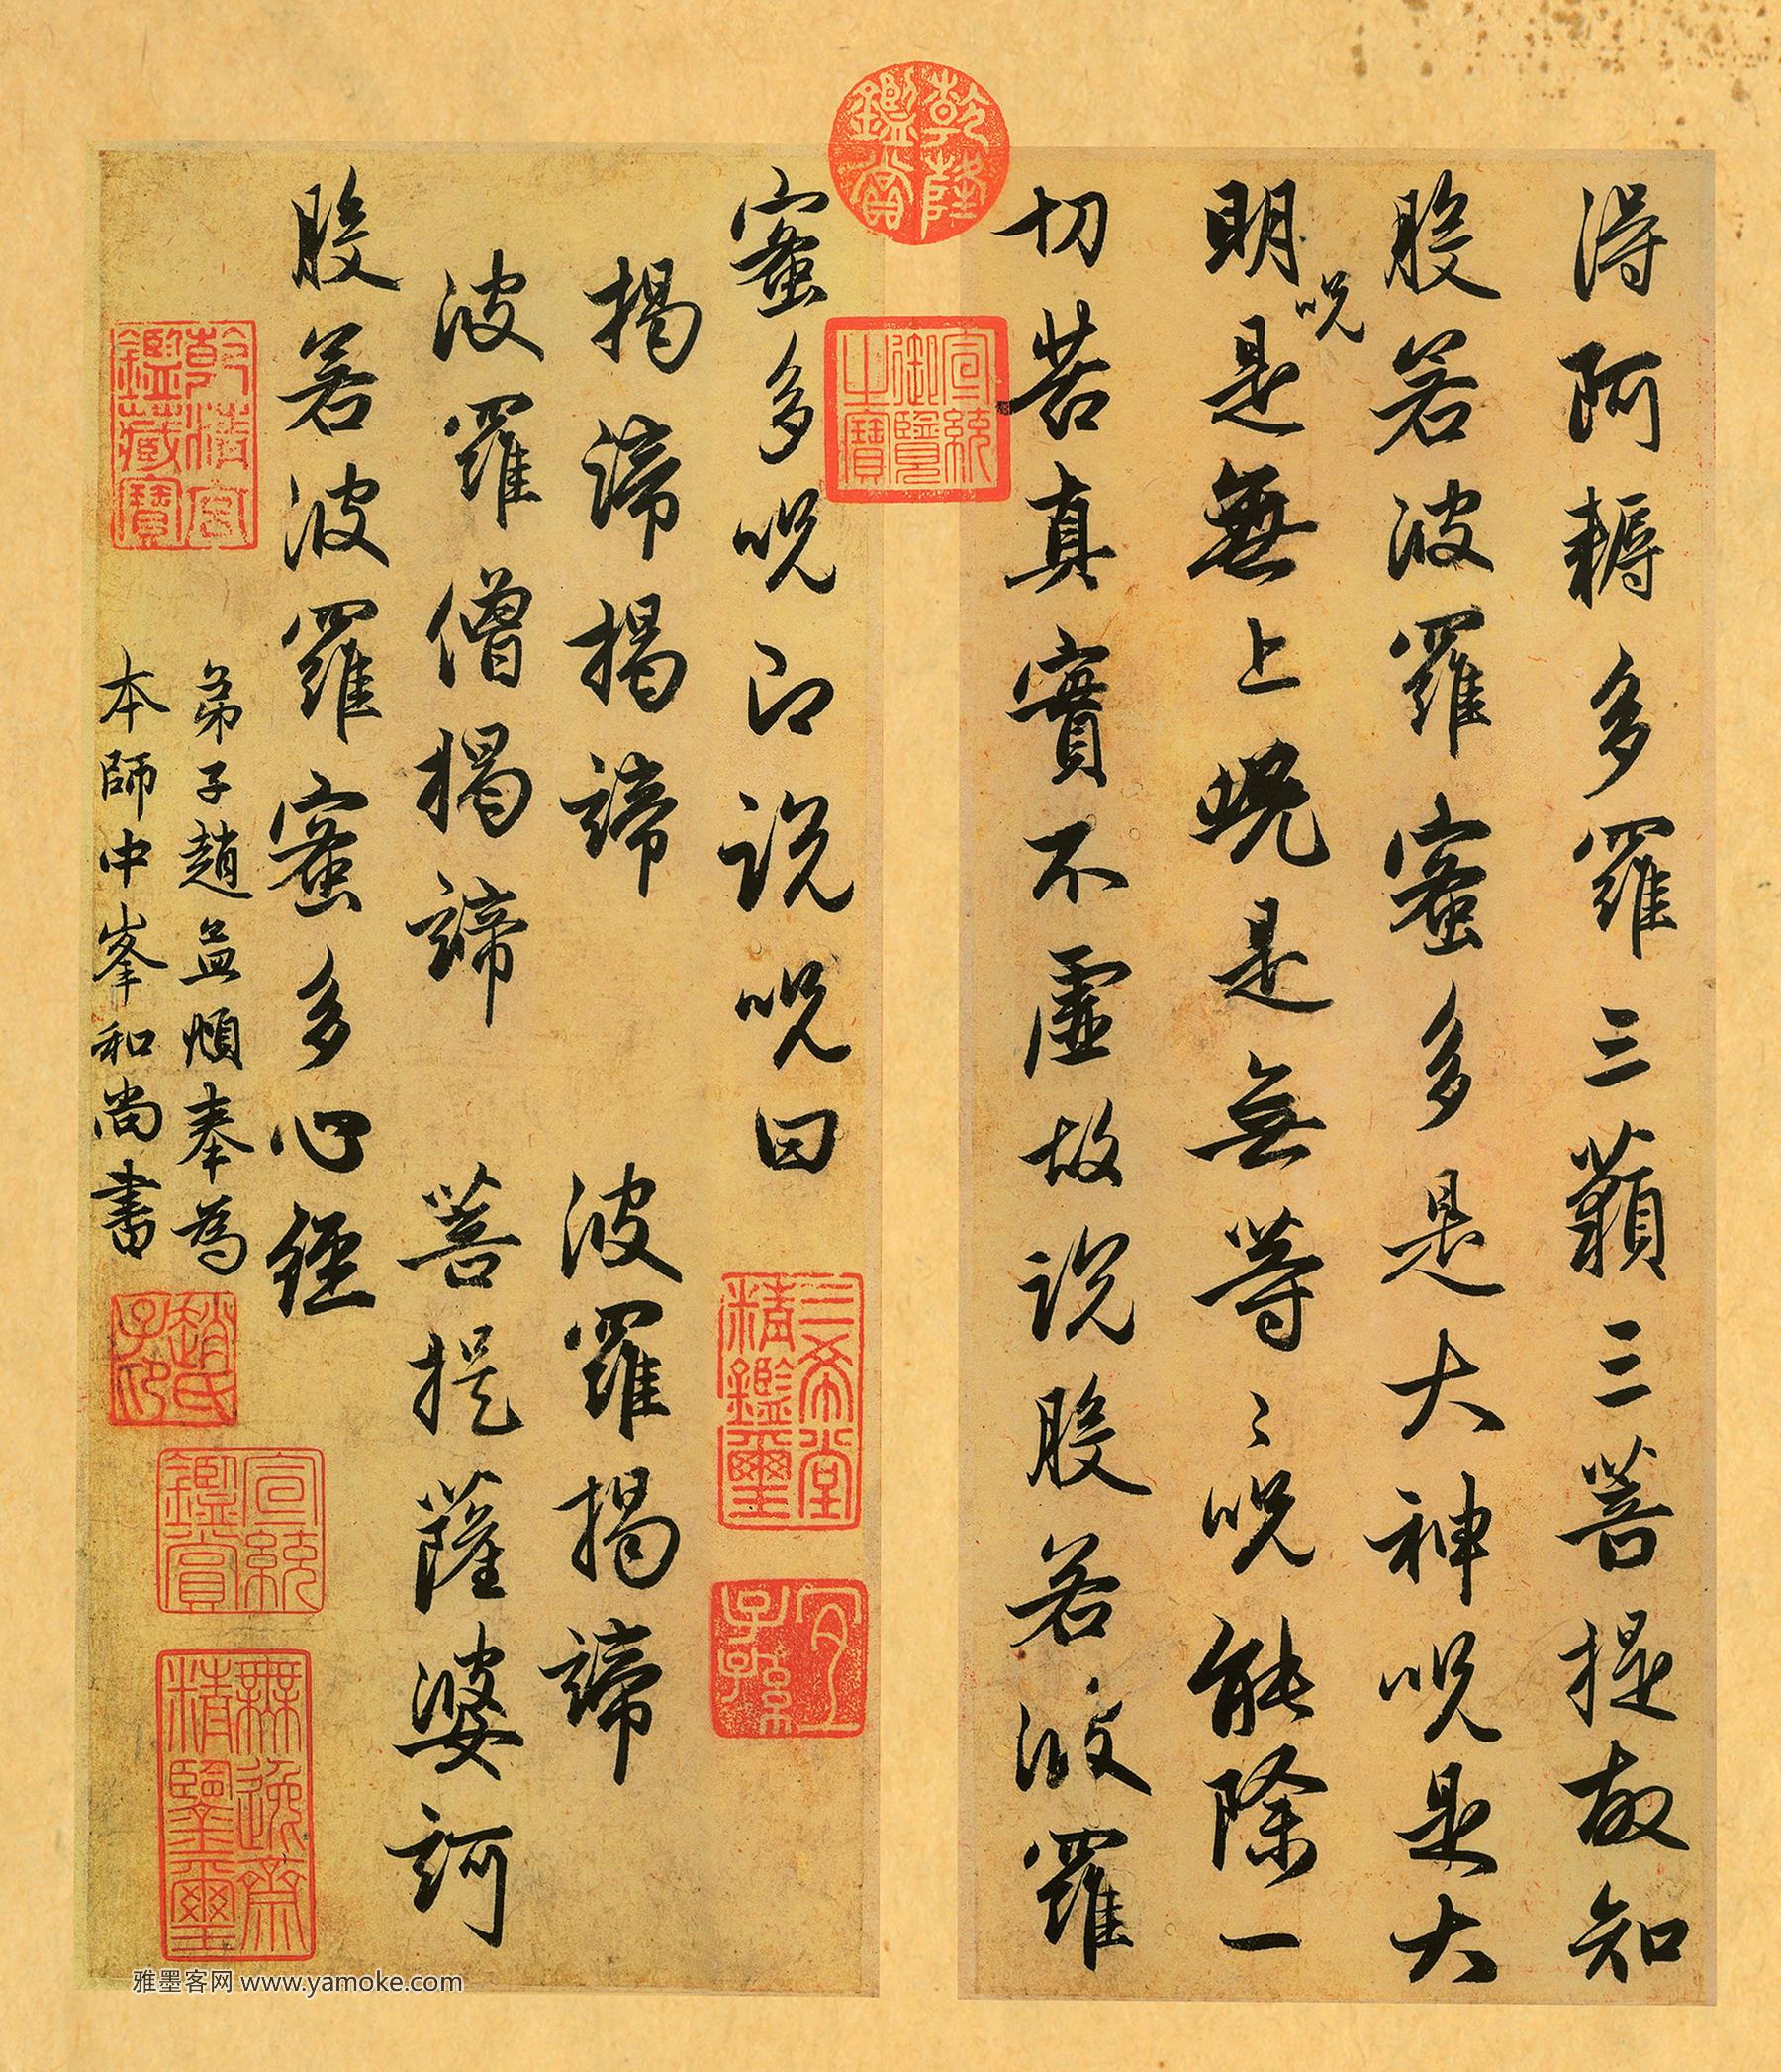 得阿耨多羅三藐三菩提故知
般若波羅蜜多是大神呪是大
明呪是無上呪是無等〻呪能除一
切苦真實不虛故說般若波羅
乾隆鑑賞
宣統御覽之寶
蜜多呪即說呪曰
三希堂精鑑璽
宜子孫
揭諦揭諦 波羅揭諦
波羅僧揭諦 菩提薩婆訶
般若波羅蜜多心經
弟子趙孟頫奉為
本師中峯和尚書
乾清宮鑑藏寶
趙氏子印
宣統鑑賞
無逸齋精鑒璽
雅墨客网 www.yamoke.com